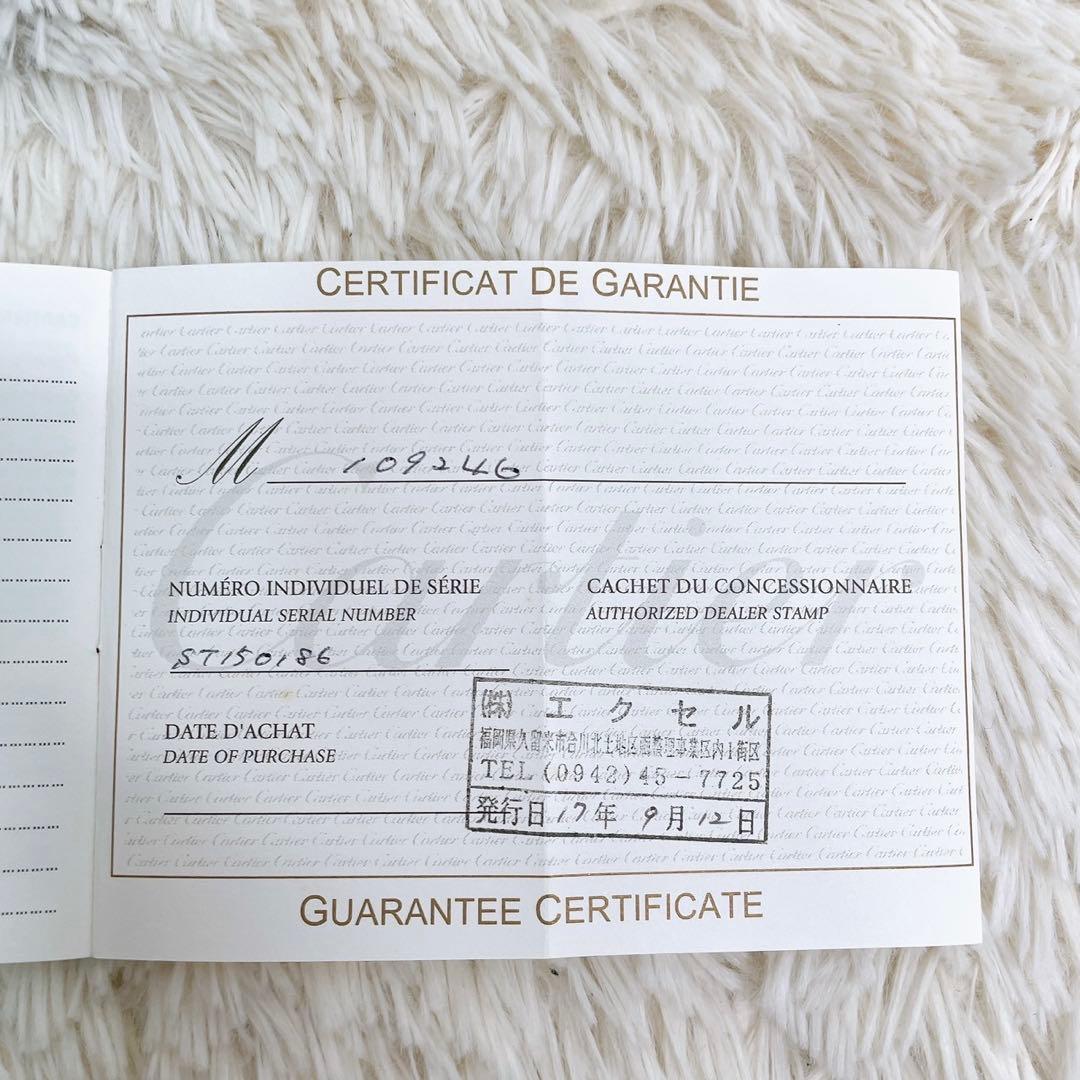 CERTIFICAT DE GARANTIE
M 109246
Cartier
NUMÉRO INDIVIDUEL DE SÉRIE
INDIVIDUAL SERIAL NUMBER
ST150186
CACHET DU CONCESSIONNAIRE
AUTHORIZED DEALER STAMP
DATE D'ACHAT
DATE OF PURCHASE
(株) エクセル
福岡県久留米市合川北土地区画整理事業区内1街区
TEL (0942) 45-7725
発行日 17年 9月 12日
GUARANTEE CERTIFICATE